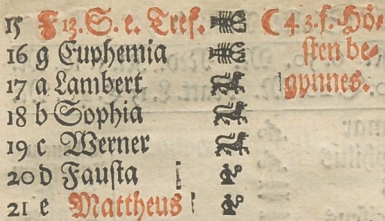 15 F 13. S. e. Tref. ☾ 4 3. f. Hö-
16 g Euphemia sten be-
17 a Lambert gynnes.
18 b Sophia
19 c Werner
20 d Fausta
21 e Mattheus